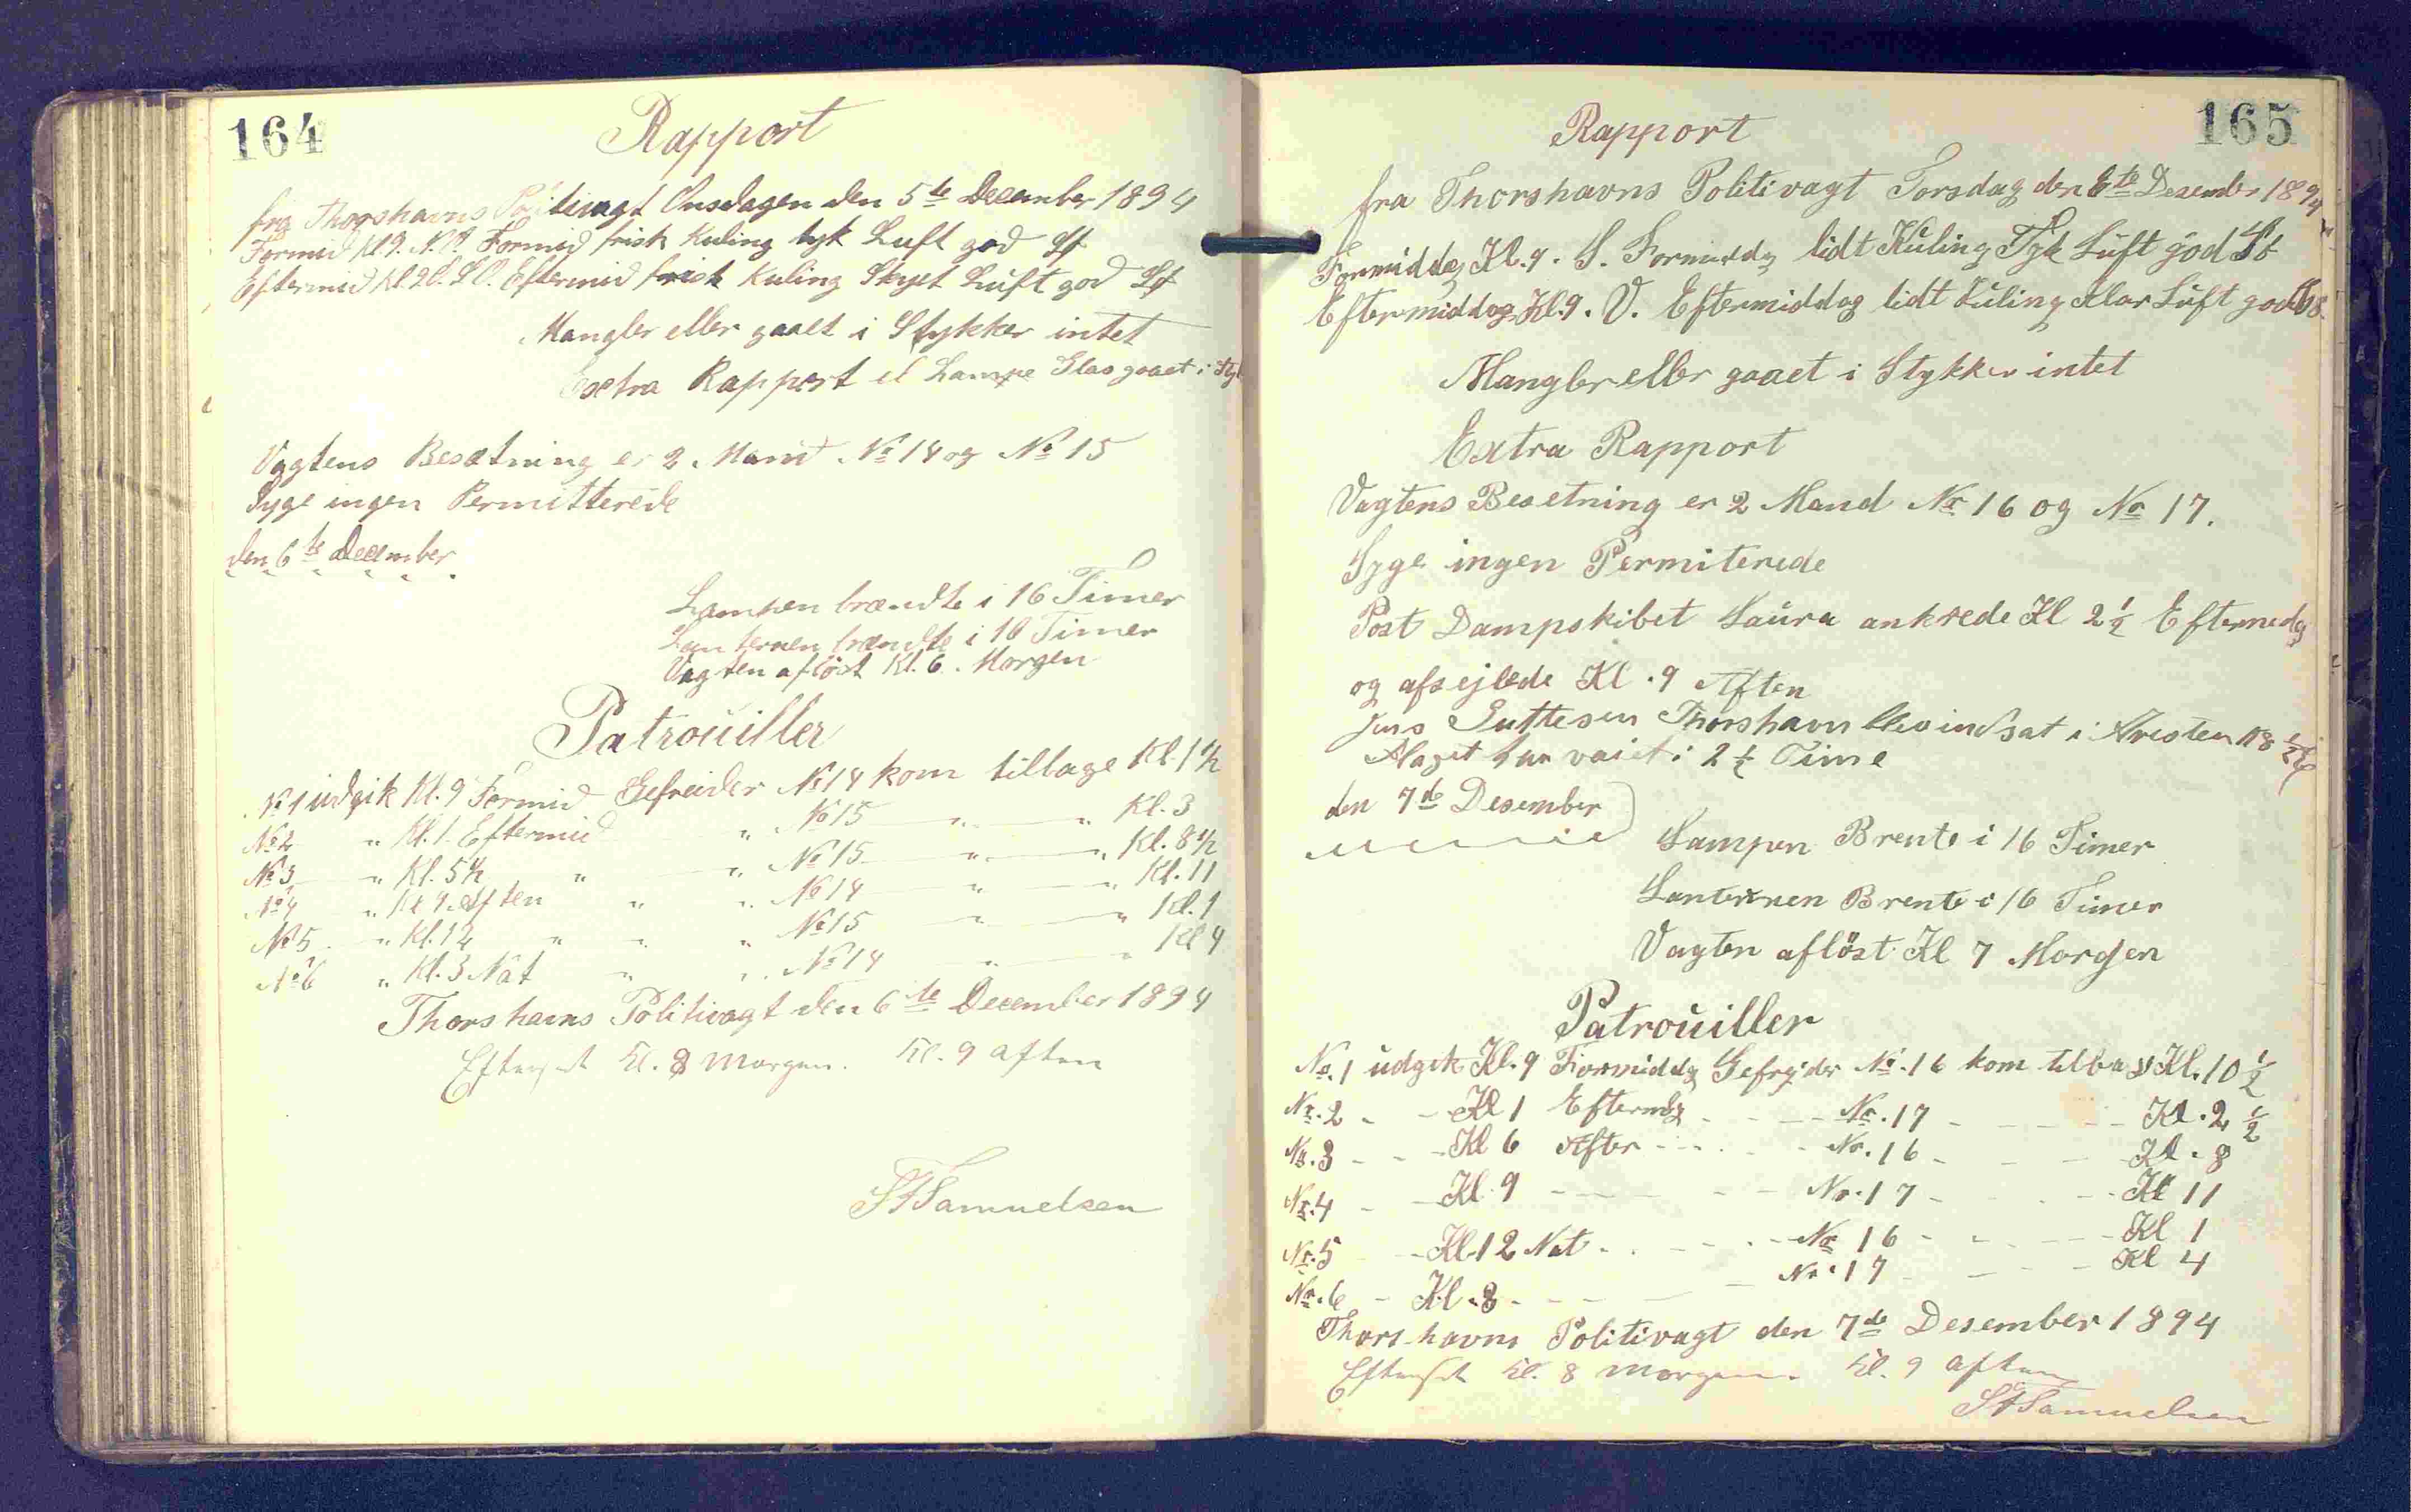 164
Rapport
fra Thorshavns Politivagt Onsdagen den 5te December 1894
Formid Kl. 9. N.O. Formid frisk Kuling tyk Luft god
Eftermid Kl. S.O. Eftermid frisk Kuling Skyet Luft god
Mangler eller gaaet i Stykker intet
Extra Rapport et Lampe Glas gaaet i
Vagtens Besætning er 2 Mand No 14 og No 15
Syge ingen Permitterede
den 6te December
Lampen brændte i 16 Timer
Lanternen brændte i 16 Timer
Vagten afløst Kl. 6. Morgen
Patrouiller
No 1 udgik Kl. 9 Formid Gefreider No 14 kom tilbage Kl. 1½
No 2 " Kl. 1. Eftermid " No 15 " " Kl. 3
No 3 " Kl. 5½ " " No 15 " " Kl. 8½
No 4 " Kl 9. Aften " " No 14 " " Kl. 11
No 5 " Kl. 12 " " " No 15 " " Kl. 1
No 6 " Kl. 3 Nat " " No 14 " " Kl 4
Thorshavns Politivagt den 6te December 1894
Efterset Kl. 8 Morgen. Kl. 9 aften
Samuelsen
165
Rapport
fra Thorshavns Politivagt Torsdag den 6te Desember 1894
Formiddag Kl. 9. S. Formiddg lidt Kuling Tyk Luft god
Eftermiddag Kl. 9. V. Eftermiddag lidt Kuling Klar Luft god
Mangler eller gaaet i Stykker intet
Extra Rapport
Vagtens Besetning er 2 Mand Nr 16 og Nr 17.
Syge ingen Permiterede
Post Dampskibet Laura ankrede Kl 2½ Eftermedg
og afsejlede Kl. 9 Aften
Jens Guttesen Thorshavn blev indsat i Aresten
har varet i 2½ Time
den 7de Desember
Lampen Brente i 16 Timer
Lanternen Brente i 16 Timer
Vagten afløst Kl 7 Morgen
Patrouiller
No. 1 udgik Kl. 9 Formiddg Gefrejder No. 16 kom tilbag Kl. 10½
Nr. 2 - - Kl 1 Eftermdg - - - Nr. 17 - - - Kl. 2½
Nr. 3 - - Kl 6 Aften - - - Nr. 16 - - - Kl. 8
Nr. 4 - - Kl. 9 - - - Nr. 17 - - - Kl 11
Nr. 5 - Kl. 12 Nat - - - Nr 16 - - - Kl 1
Nr. 6 - Kl. 3 - - - Nr. 17 - - - Kl 4
Thorshavns Politivagt den 7de Desember 1894
Efterset Kl. 8 Morgen. Kl. 9 aften
Samuelsen